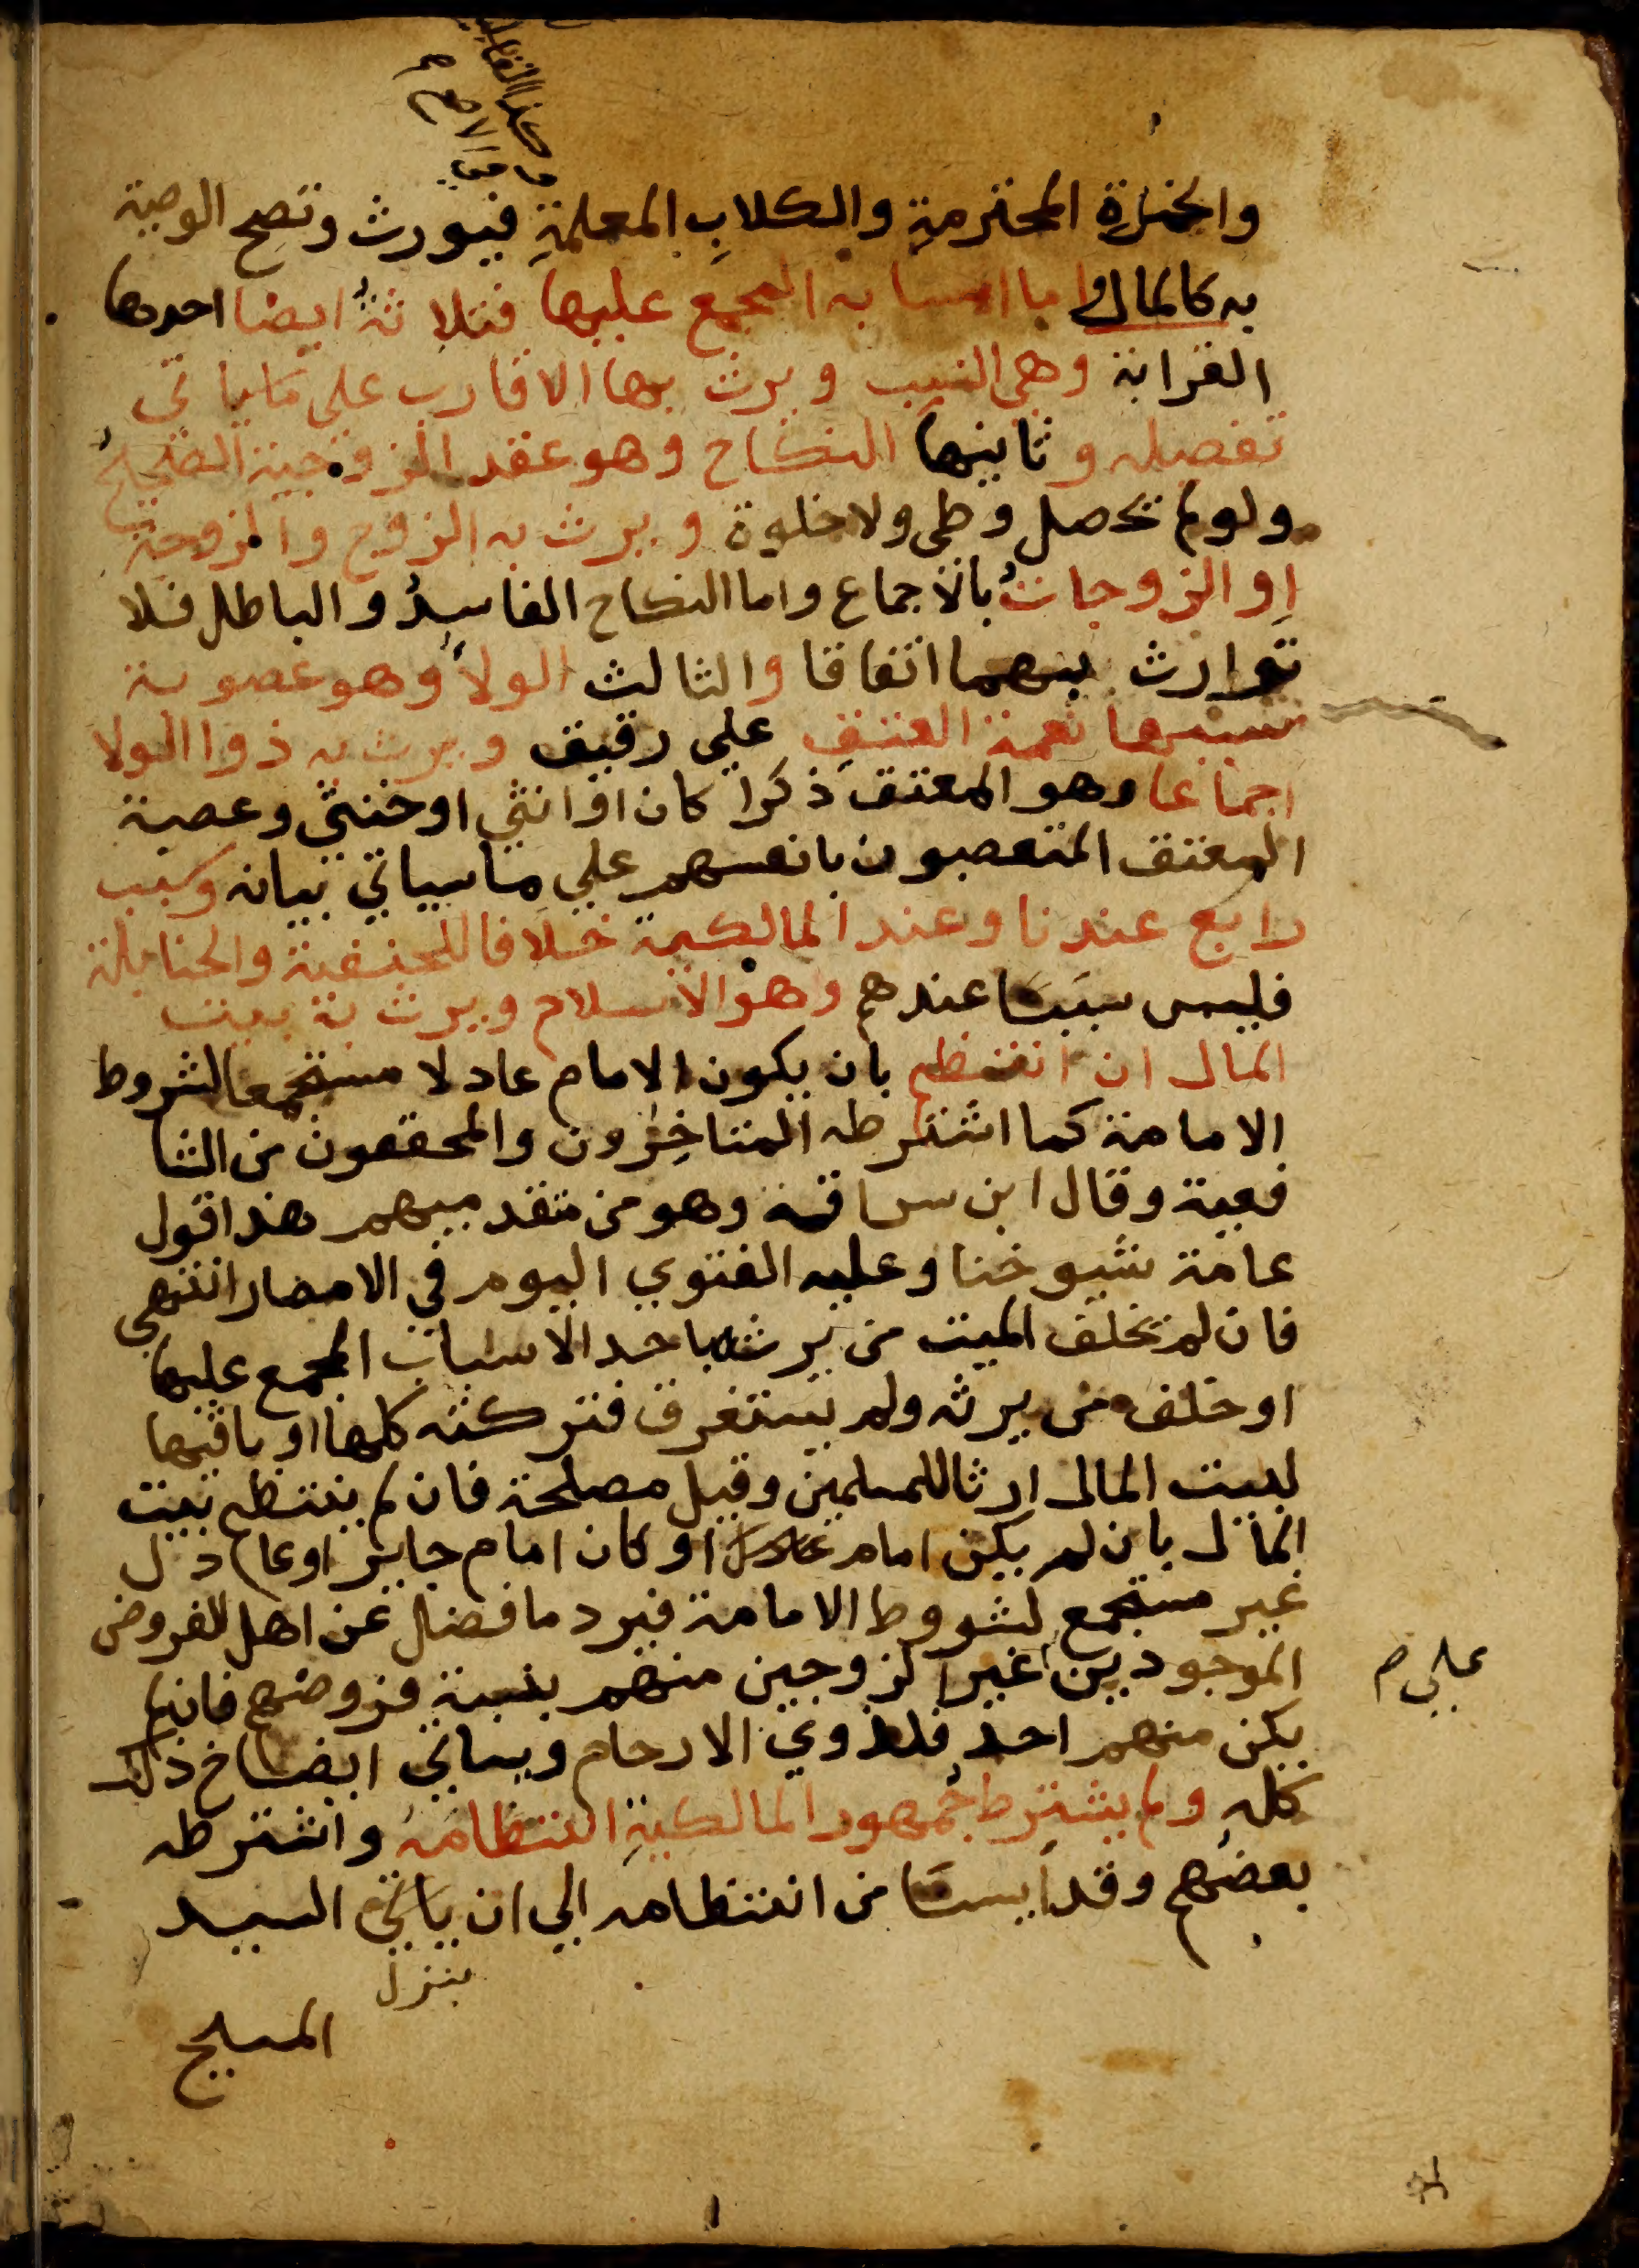 والخمرة المحترمةِ والكلابِ المعلمةِ فيورث وتصح الوصية
به كالمال واما اسبابه المجمع عليها فثلاثةٌ ايضا احدها
القرابة وهي النسب ويرث بها الاقارب علي ما ياتي
تفصيله وثانيها النكاح وهو عقد الزوجية الصحيحُ
ولو لم تحصل وطي ولا خلوة ويرث به الزوج والزوجة
او الزوجاتُ بالاجماع واما النكاح الفاسدُ والباطل فلا
توارث بينهما اتفاقا والثالث الولاُ وهو عصوبة
سببها نعمة العتقِ علي رقيق ويرث به ذوا الولا
اجماعا وهو المعتق ذكرا كان او انثي او خنثي وعصبة
المعتق المتعصبون بانفسهم علي ما سياتي بيانه وسبب
رابع عندنا وعند المالكية خلافا للحنفية والحنابلة
فليس سببًا عندهم وهو الاسلام ويرث به بيت
المال ان انتظم بان يكون الامام عادلا مستجمعا لشروط
الامامة كما اشترطه المتاخِرون والمحققون من الشا
فعية وقال ابن سراقة وهو من متقدميهم هذا قول
عامة شيوخنا وعليه الفتوي اليوم في الامصار انتهي
فان لم تخلف الميت من يرثه باحد الاسباب المجمع عليها
او خلف من يرثه ولم يستغرق فتركته كلها او باقيها
لبيت المال ارثا للمسلمين وقيل مصلحة فان لم ينتظم بيت
المال بان لم يكن امام عادل او كان امام جاير او عادل
غير مستجمع لشروط الامامة فيرد ما فضل عن اهل الفروض
الموجودين غير الزوجين منهم بنسبة فروضهم فان لم
علي م
يكن منهم احد فلذوي الارحام وسياتي ايضاح ذلك
كله ولم يشترط جمهور المالكيةِ انتظامه واشترطه
بعضهم وقد ايسنا من انتظامه الي ان ياتي السيد
ينزل
المسيح